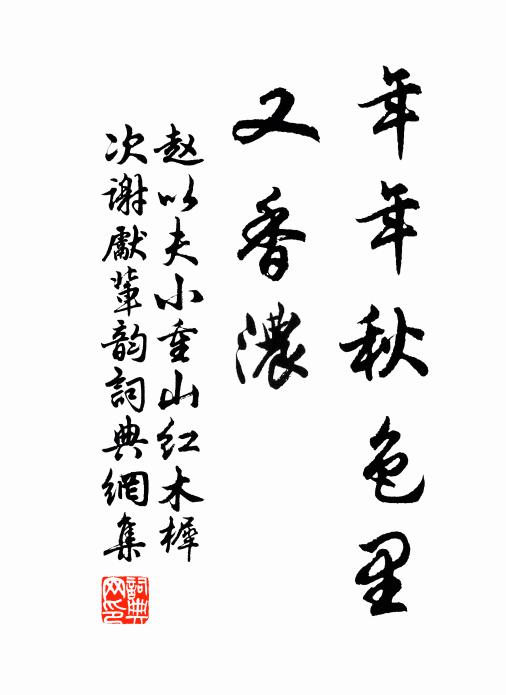 年年秋色里
又香濃
赵以夫小重山红木樨
次謝獻輩韵詞典網集
詞典网印